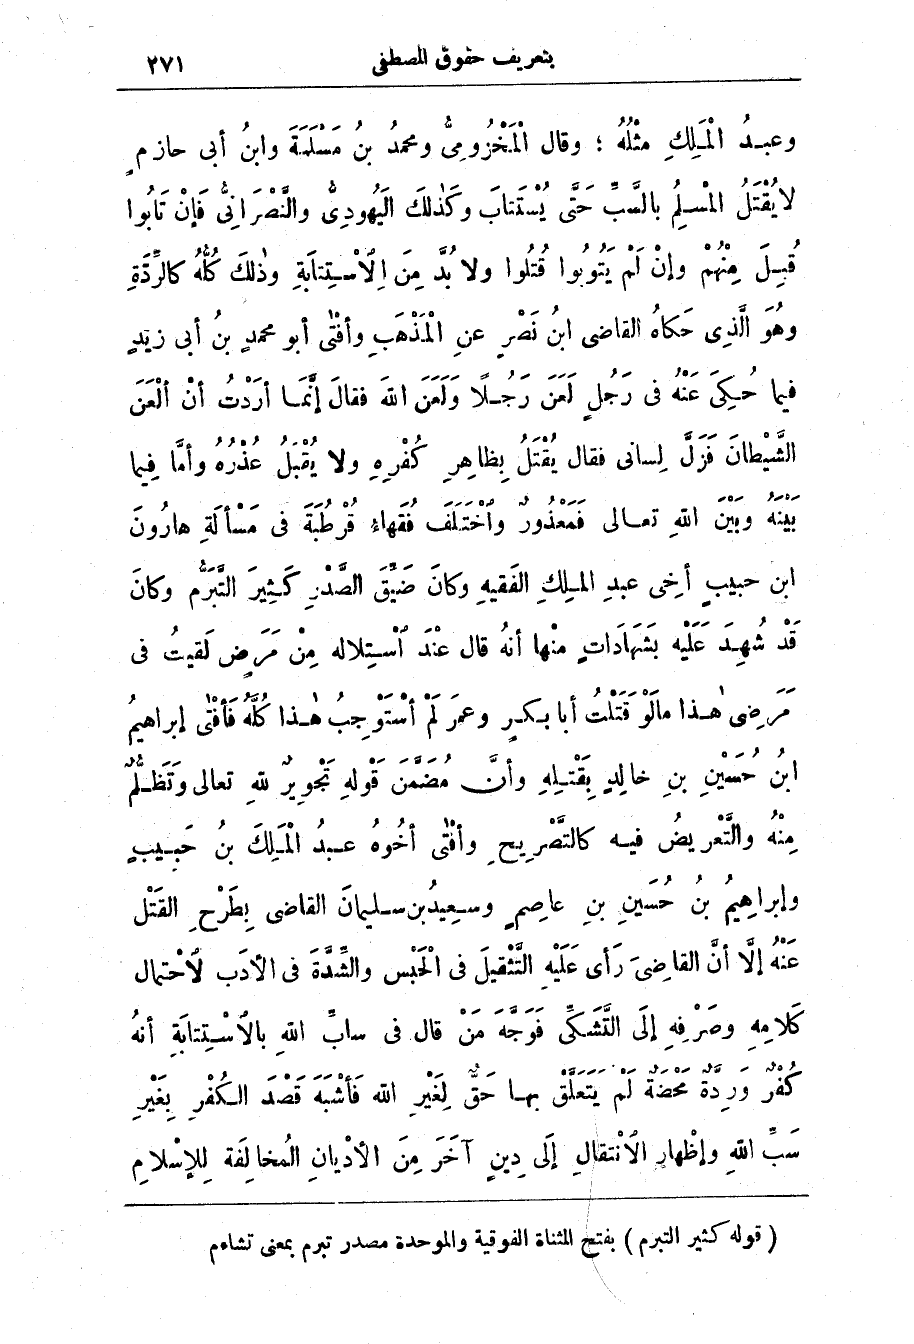 بتعريف حقوق المصطفى ٢٧١
وعبدُ الْمَلِكِ مِثْلُهُ ؛ وقال الْمَخْزُومِىُّ ومحمدُ بنُ مَسْلَمَةَ وابنُ أبى حازمٍ
لا يُقْتَلُ الْمُسْلِمُ بالسَّبِّ حَتَّى يُسْتَتَابَ وكَذٰلِكَ اليَهُودِىُّ والنَّصْرَانِىُّ فَإنْ تَابُوا
قُبِلَ مِنْهُمْ وإنْ لَمْ يَتُوبُوا قُتِلُوا ولا بُدَّ مِنَ الِاسْتِتابَةِ وذٰلِكَ كُلُّهُ كالرِّدَّةِ
وهُوَ الَّذِى حَكاهُ القاضى ابنُ نَصْرٍ عنِ الْمَذْهَبِ وأفْتٰى أبو محمدٍ بنُ أبى زَيْدٍ
فيما حُكِىَ عَنْهُ فى رَجُلٍ لَعَنَ رَجُلًا ولَعَنَ اللهَ فقالَ إنَّما أرَدْتُ أنْ ألْعَنَ
الشَّيْطانَ فَزَلَّ لِسانى فقال يُقْتَلُ بِظاهِرِ كُفْرِهِ ولا يُقْبَلُ عُذْرُهُ وأمَّا فِيما
بَيْنَهُ وبَيْنَ اللهِ تعالى فَمَعْذُورٌ واخْتَلَفَ فُقَهاءُ قُرْطُبَةَ فى مَسْألَةِ هارُونَ
ابن حبيبٍ أخِى عبدِ الملِكِ الفَقيهِ وكانَ ضَيِّقَ الصَّدْرِ كَثِيرَ التَّبَرُّمِ وكانَ
قَدْ شُهِدَ عَلَيْه بَشَهَادَاتٍ منْها أنهُ قال عنْدَ اسْتِلاله مِنْ مَرَضٍ لَقيتُ فى
مَرَضِى هٰذا مالَوْ قَتَلْتُ أبا بكرٍ وعمرَ لَمْ أسْتَوْجِبْ هٰذا كُلَّهُ فَأفْتٰى إبراهيمُ
ابنُ حُسَيْنِ بنِ خالِدٍ بِقَتْلِهِ وأنَّ مُضَمَّنَ قَوْلِهِ تَجْوِيرٌ للهِ تعالى وَتَظَلُّمٌ
مِنْهُ والتَّعْرِيضُ فيه كالتَّصْرِيحِ وأفْتٰى أخُوهُ عبدُ الْمَلِكِ بنُ حَبيبٍ
وإبراهِيمُ بنُ حُسَينِ بنِ عاصِمٍ وسعِيدُ بن سليمانَ القاضى بِطَرْحِ القَتْلِ
عَنْهُ إلَّا أنَّ القاضِىَ رَأى عَلَيْهِ التَّثْقيلَ فى الْحَبْسِ والشِّدَّةَ فى الأدَبِ لاحْتِمالِ
كَلامِهِ وصَرْفِهِ إلَى التَّشَكِّى فَوَجْهُ مَنْ قال فى سابِّ اللهِ بالِاسْتِتابَةِ أنهُ
كُفْرٌ وَرِدَّةٌ مَحْضَةٌ لَمْ يَتَعَلَّقْ بها حَقٌّ لِغَيْرِ الله فَأشْبَهَ قَصْدَ الكُفْرِ بِغَيْرِ
سَبِّ اللهِ وإظْهارِ الانْتقالِ إلَى دِينٍ آخَرَ مِنَ الأدْيانِ الْمُخالِفَةِ لِلإسْلامِ
( قوله كثير التبرم ) بفتح المثناة الفوقية والموحدة مصدر تبرم بمعنى تشاءم